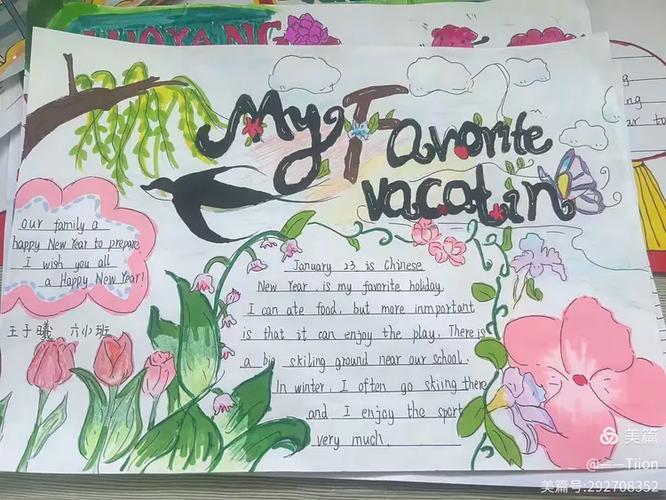 My Favorite
vacatin
our family a
happy New Year to prepare
I wish you all
a Happy New Year!
王子曦 六小班
January 23 is Chinese
New Year, is my favorite holiday.
I can ate food, but more inmportant
is that it can enjoy the play. There is
a big skiling ground near our school.
In winter, I often go skiing there
and I enjoy the sport
very much.
美篇
@——Tiion
美篇号:292708352